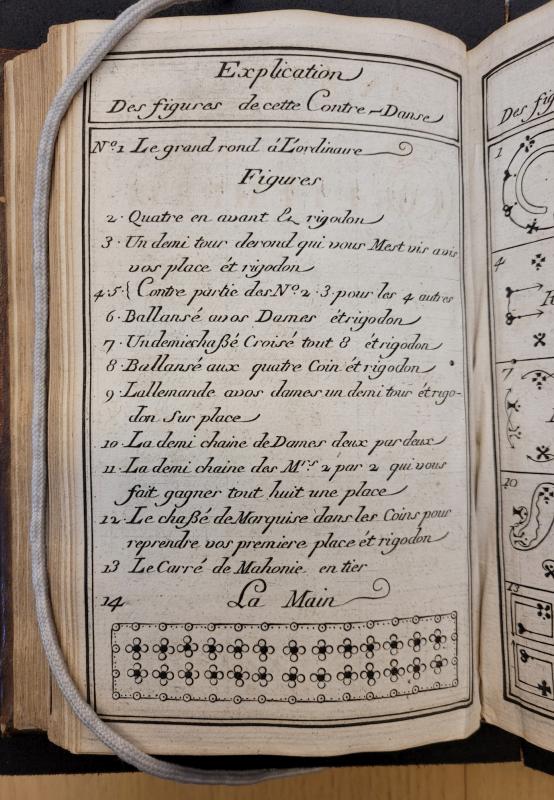 Explication
Des figures de cette Contre-Danse
Nº.1 Le grand rond á L'ordinaire
Figures
2. Quatre en avant & rigodon
3. Un demi tour derond qui vous Mest vis avis
vos place ét rigodon
4.5.{ Contre partie des Nº. 2. 3. pour les 4 autres
6. Ballansé avos Dames étrigodon
7. Undemichaßé Croisé tout 8 étrigodon
8. Ballansé aux quatre Coin ét rigodon
9. Lallemande avos dames un demi tour étrigo-
don sur place
10. La demi chaine de Dames deux par deux
11. La demi chaine des Mrs 2 par 2 qui vous
fait gagner tout huit une place
12. Le chaßé de Marquise dans les Coins pour
reprendre vos premiere place ét rigodon
13 Le Carré de Mahonie en tier
14 La Main
Des fig
1
4
R
7
10
13